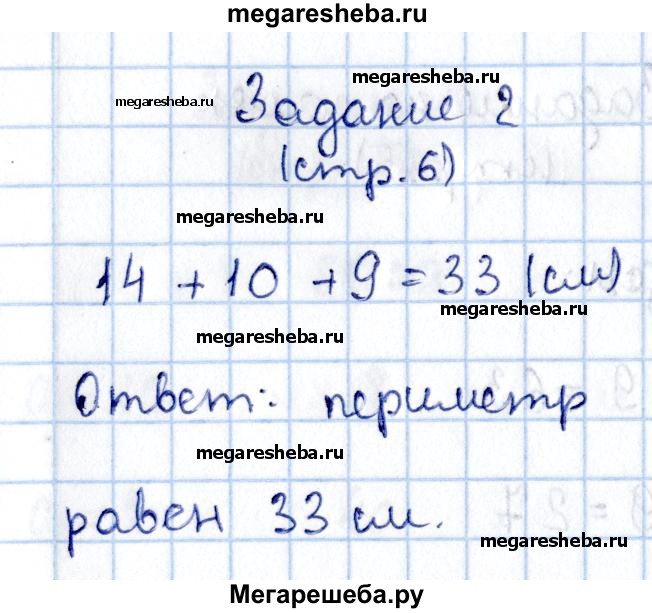 megaresheba.ru
megaresheba.ru
megaresheba.ru
Задание 2
(стр. 6)
megaresheba.ru
14 + 10 + 9 = 33 (см)
megaresheba.ru
megaresheba.ru
Ответ: периметр
megaresheba.ru
равен 33 см.
megaresheba.ru
Мегарешеба.ру